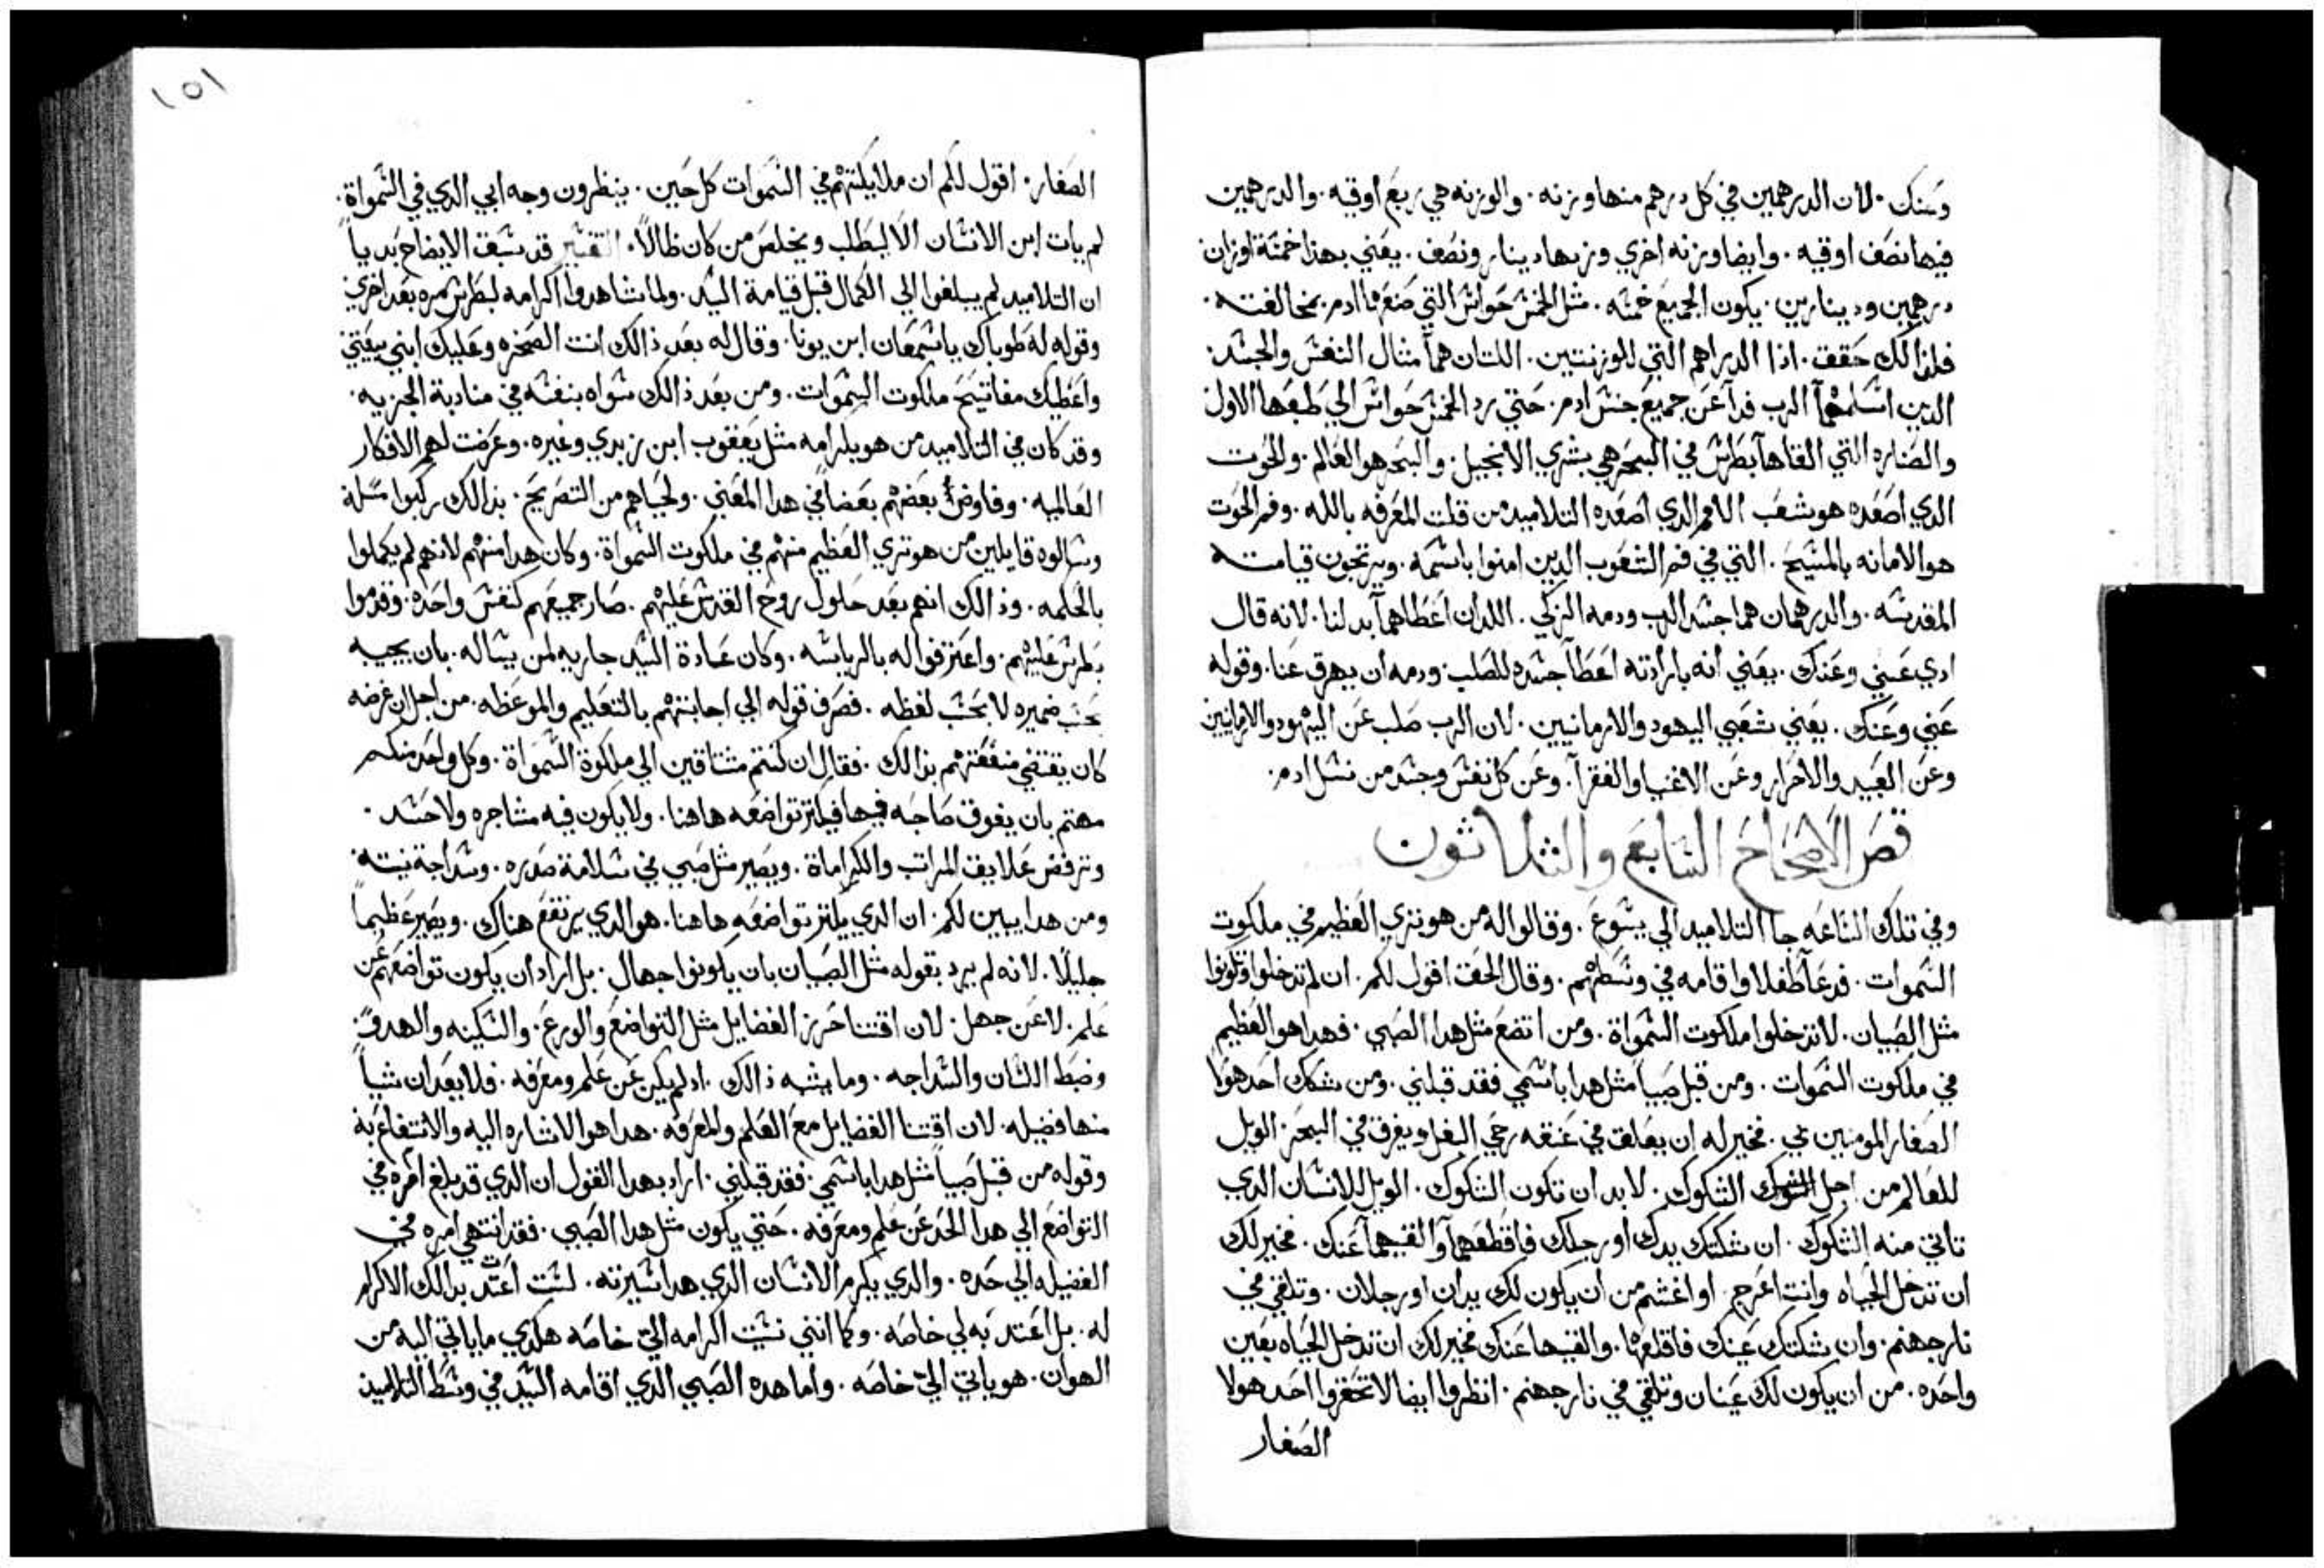 وعنك. لان الدرهمين في كل درهم منها وزنه. والوزنه هي ربع اوقيه. والدرهمين
فيها نصف اوقيه. وايضا وزنه اخري وزنها دينار ونصف. يعني بهذا خمسة اوزان
درهمين ودينارين. يكون الجميع خمسه. مثل الخمس حواس التي ضنعها ادم بمخالفته.
فلذالك حقق. اذا الدراهم التي للوزنتين. اللتان هما مثال النفس والجسد.
الدين اسلمهما الرب فدآ عن جميع جنس ادم. حتي رد الخمس حواس الي طبعها الاول
والصناره التي القاها بطرس في البحر هي بشري الانجيل. والبحر هو العالم. والحوت
الدي اصعده هو شعب الامم الدي اصعده التلاميد من قلت المعرفه بالله. وفم الحوت
هو الامانه بالمسيح. التي في فم الشعوب الدين امنوا باسمه. ويرتجون قيامته
المقدسه. والدرهمان هما جسد الرب ودمه الزكي. اللدان اعطاهما بدلنا. لانه قال
ادي عني وعنك. يعني انه بارادته اعطا جسده للصلب ودمه ان يهرق عنا. وقوله
عني وعنك. يعني شعبي اليهود والارمانيين. لان الرب صلب عن اليهود والارمانيين
وعن العبيد والاحرار وعن الاغنيا والفقرآ. وعن كل نفس وجسد من نسل ادم.
قص الاصحاح السابع والثلاثون
وفي تلك الساعه جا التلاميد الي يسوع. وقالوا له من هو تري العظيم في ملكوت
السموات. فدعآ طفلا واقامه في وسطهم. وقال الحق اقول لكم. ان لم تدخلوا وتكونوا
مثل الصبيان. لا تدخلوا ملكوت السمواة. ومن اتضع مثل هدا الصبي. فهدا هو العظيم
في ملكوت السموات. ومن قبل صبياً مثل هدا باسمي فقد قبلني. ومن شكك احد هولا
الصغار المومنين بي. فخير له ان يعلق في عنقه رحي البغل ويغرق في البحر. الويل
للعالم من اجل الشكوك. لابد ان تكون الشكوك. الويل للانسان الدي
تاتي منه الشكوك. ان شككتك يدك او رجلك فاقطعهما والقيهما عنك. فخير لك
ان تدخل الحياه وانت اعرج او اغشم من ان يكون لك يدان او رجلان. وتلقي في
نار جهنم. وان شككتك عينك فاقلعها. والقيها عنك فخير لك ان تدخل الحياه بعين
واحده. من ان يكون لك عينان وتلقي في نار جهنم. انظروا ايضا لا تحقروا احد هولا
الصغار
١٥١
الصغار. اقول لكم ان ملايكتهم في السموات كل حين. ينظرون وجه ابي الدي في السمواة.
لم يات ابن الانسان الا ليطلب ويخلص من كان ظالاً. التفسير قد سبق الايضاح بدياً
ان التلاميد لم يبلغوا الي الكمال قبل قيامة السيد. ولما شاهدوا اكرامه لبطرس مره بعد اخري
وقوله له طوباك ياسمعان ابن يونا. وقال له بعد ذالك انت الصخره وعليك ابني بيعتي
واعطيك مفاتيح ملكوت السموات. ومن بعد ذالك سواه بنفسه في مناداة الجزيه.
وقد كان في التلاميد من هو يكرمه مثل يعقوب ابن زبدي وغيره. وعرضت لهم الافكار
العالميه. وفاوض بعضهم بعضا في هدا المعني. ولحياهم من التصريح. بدالك ركبوا مسلة
وسالوه قايلين من هو تري العظيم منهم في ملكوت السمواة. وكان هدا منهم لانهم لم يكملوا
بالحكمه. وذالك انهم بعد حلول روح القدس عليهم. صار جميعهم كنفس واحده. وقدموا
بطرس عليهم. واعترفوا له بالرياسه. وكان عادة السيد جاريه لمن يساله. بان يجيبه
بحسب ضميره لا بحسب لفظه. فصرف قوله الي اجابتهم بالتعليم والموعظه. من اجل ان غرضه
كان يقتضي منفعتهم بدالك. فقال ان كنتم مشتاقين الي ملكوة السمواة. وكل واحد منكم
مهتم بان يفوق صاحبه فيها فيكتر تواضعه هاهنا. ولا يكون فيه مشاجره ولا حسد.
وترفض علايق المراتب والكراماة. ويصير مثل صبي في سلامة صدره. وسداجة نيته
ومن هدا يبين لكم ان الدي يكتر تواضعه هاهنا. هو الدي يرتفع هناك. ويصير عظيماً
جليلا. لانه لم يرد بقوله مثل الصبيان بان يكونوا جهال. بل اراد ان يكون تواضعهم عن
علم. لا عن جهل. لان اقتنا حرز الفضايل مثل التواضع والورع. والسكينه والهدو.
وضبط اللسان والسداجه. وما يشبه ذالك. ادا لم يكن عن علم ومعرفه. فلا يعد ان شياً
منها فضيله. لان اقتنا الفضايل مع العلم والمعرفه. هدا هو الاشاره اليه والانتفاع به
وقوله من قبل صبياً مثل هدا باسمي. فقد قبلني. اراد بهدا القول ان الدي قد بلغ امره في
التواضع الي هدا الحد عن علم ومعرفه. حتي يكون مثل هدا الصبي. فقد انتهي امره في
الفضيله الي حده. والدي يكرم الانسان الدي هدا سيرته. لست اعتد بدالك الاكرام
له. بل اعتد به لي خاصه. وكما انني نسبت اكرامه الي خاصه هكدي ما ياتي اليه من
الهوان. هو ياتي الي خاصه. واما هده الصبي الدي اقامه السيد في وسط التلاميد